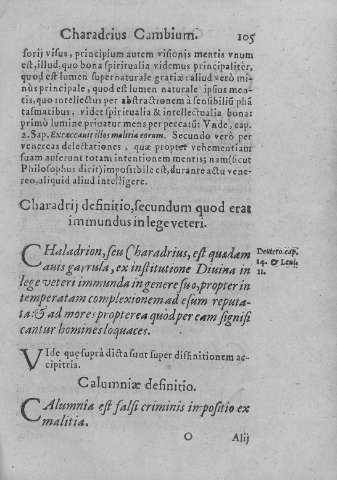 Charadrius Cambium. 105
sorij visus, principium autem visionis mentis vnum
est, illud, quo bona spiritualia videmus principaliter,
quod est lumen supernaturale gratiæ: aliud verò mi-
nùs principale, quod est lumen naturale ipsius men-
tis, quo intellectus per abstractionem à sensibiliũ phã
tasmatibus, videt spiritualia & intellectualia bona:
primò lumine priuatur mens per peccatũ: Vnde, cap.
2. Sap. Excæcauit illos malitia eorum. Secundo verò per
venereas delectationes, quæ propter vehementiam
suam auferunt totam intentionem mentis; nam (sicut
Philosophus dicit) impossibile est, durante actu vene-
reo, aliquid aliud intelligere.
Charadrij definitio, secundum quod erat
immundus in lege veteri.
CHaladrion, seu Charadrius, est quædam
auis garrula, ex institutione Diuina in
lege veteri immunda in genere suo, propter in
temperatam complexionem ad esum reputa-
ta: & ad mores propterea quòd per eam signifi
cantur homines loquaces.
Deutero. cap.
14. & Leuit.
11.
VIde quę suprà dicta sunt super diffinitionem ac-
cipitris.
Calumniæ definitio.
CAlumnia est falsi criminis impositio ex
malitia.
O Alij